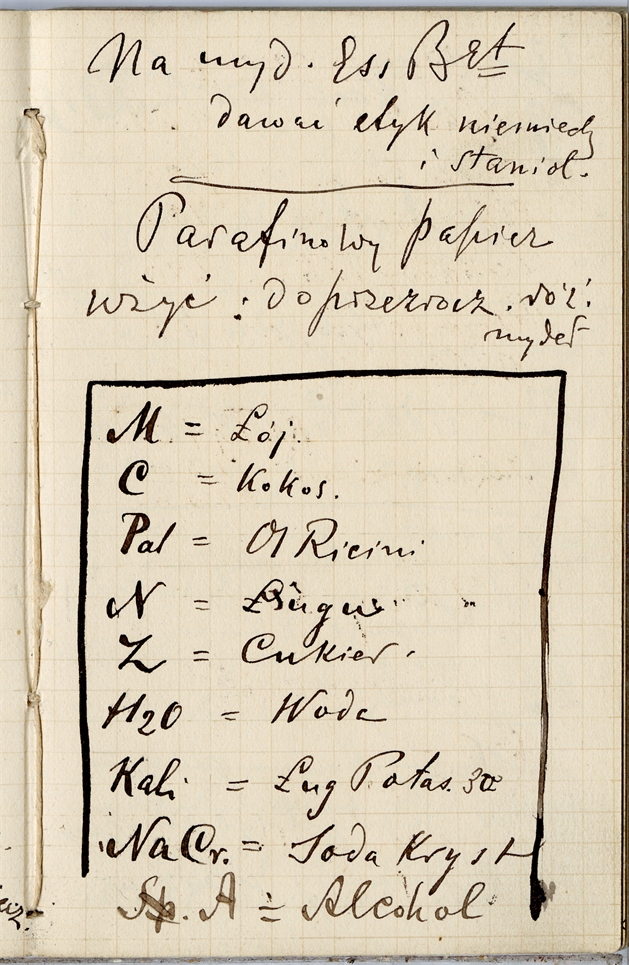 Na myd. Ess Bqt
dawać etyk niemiecką
i staniol.
Parafinowy papier
użyć : do przezrocz. róż.
mydeł
M = Łój.
C = Kokos.
Pal = Ol Ricini
N =
Z = Cukier.
H2O = Woda
Kali = Ług Potas. 30
Na Cr. = Soda Kryst
Sp. A = Alcohol